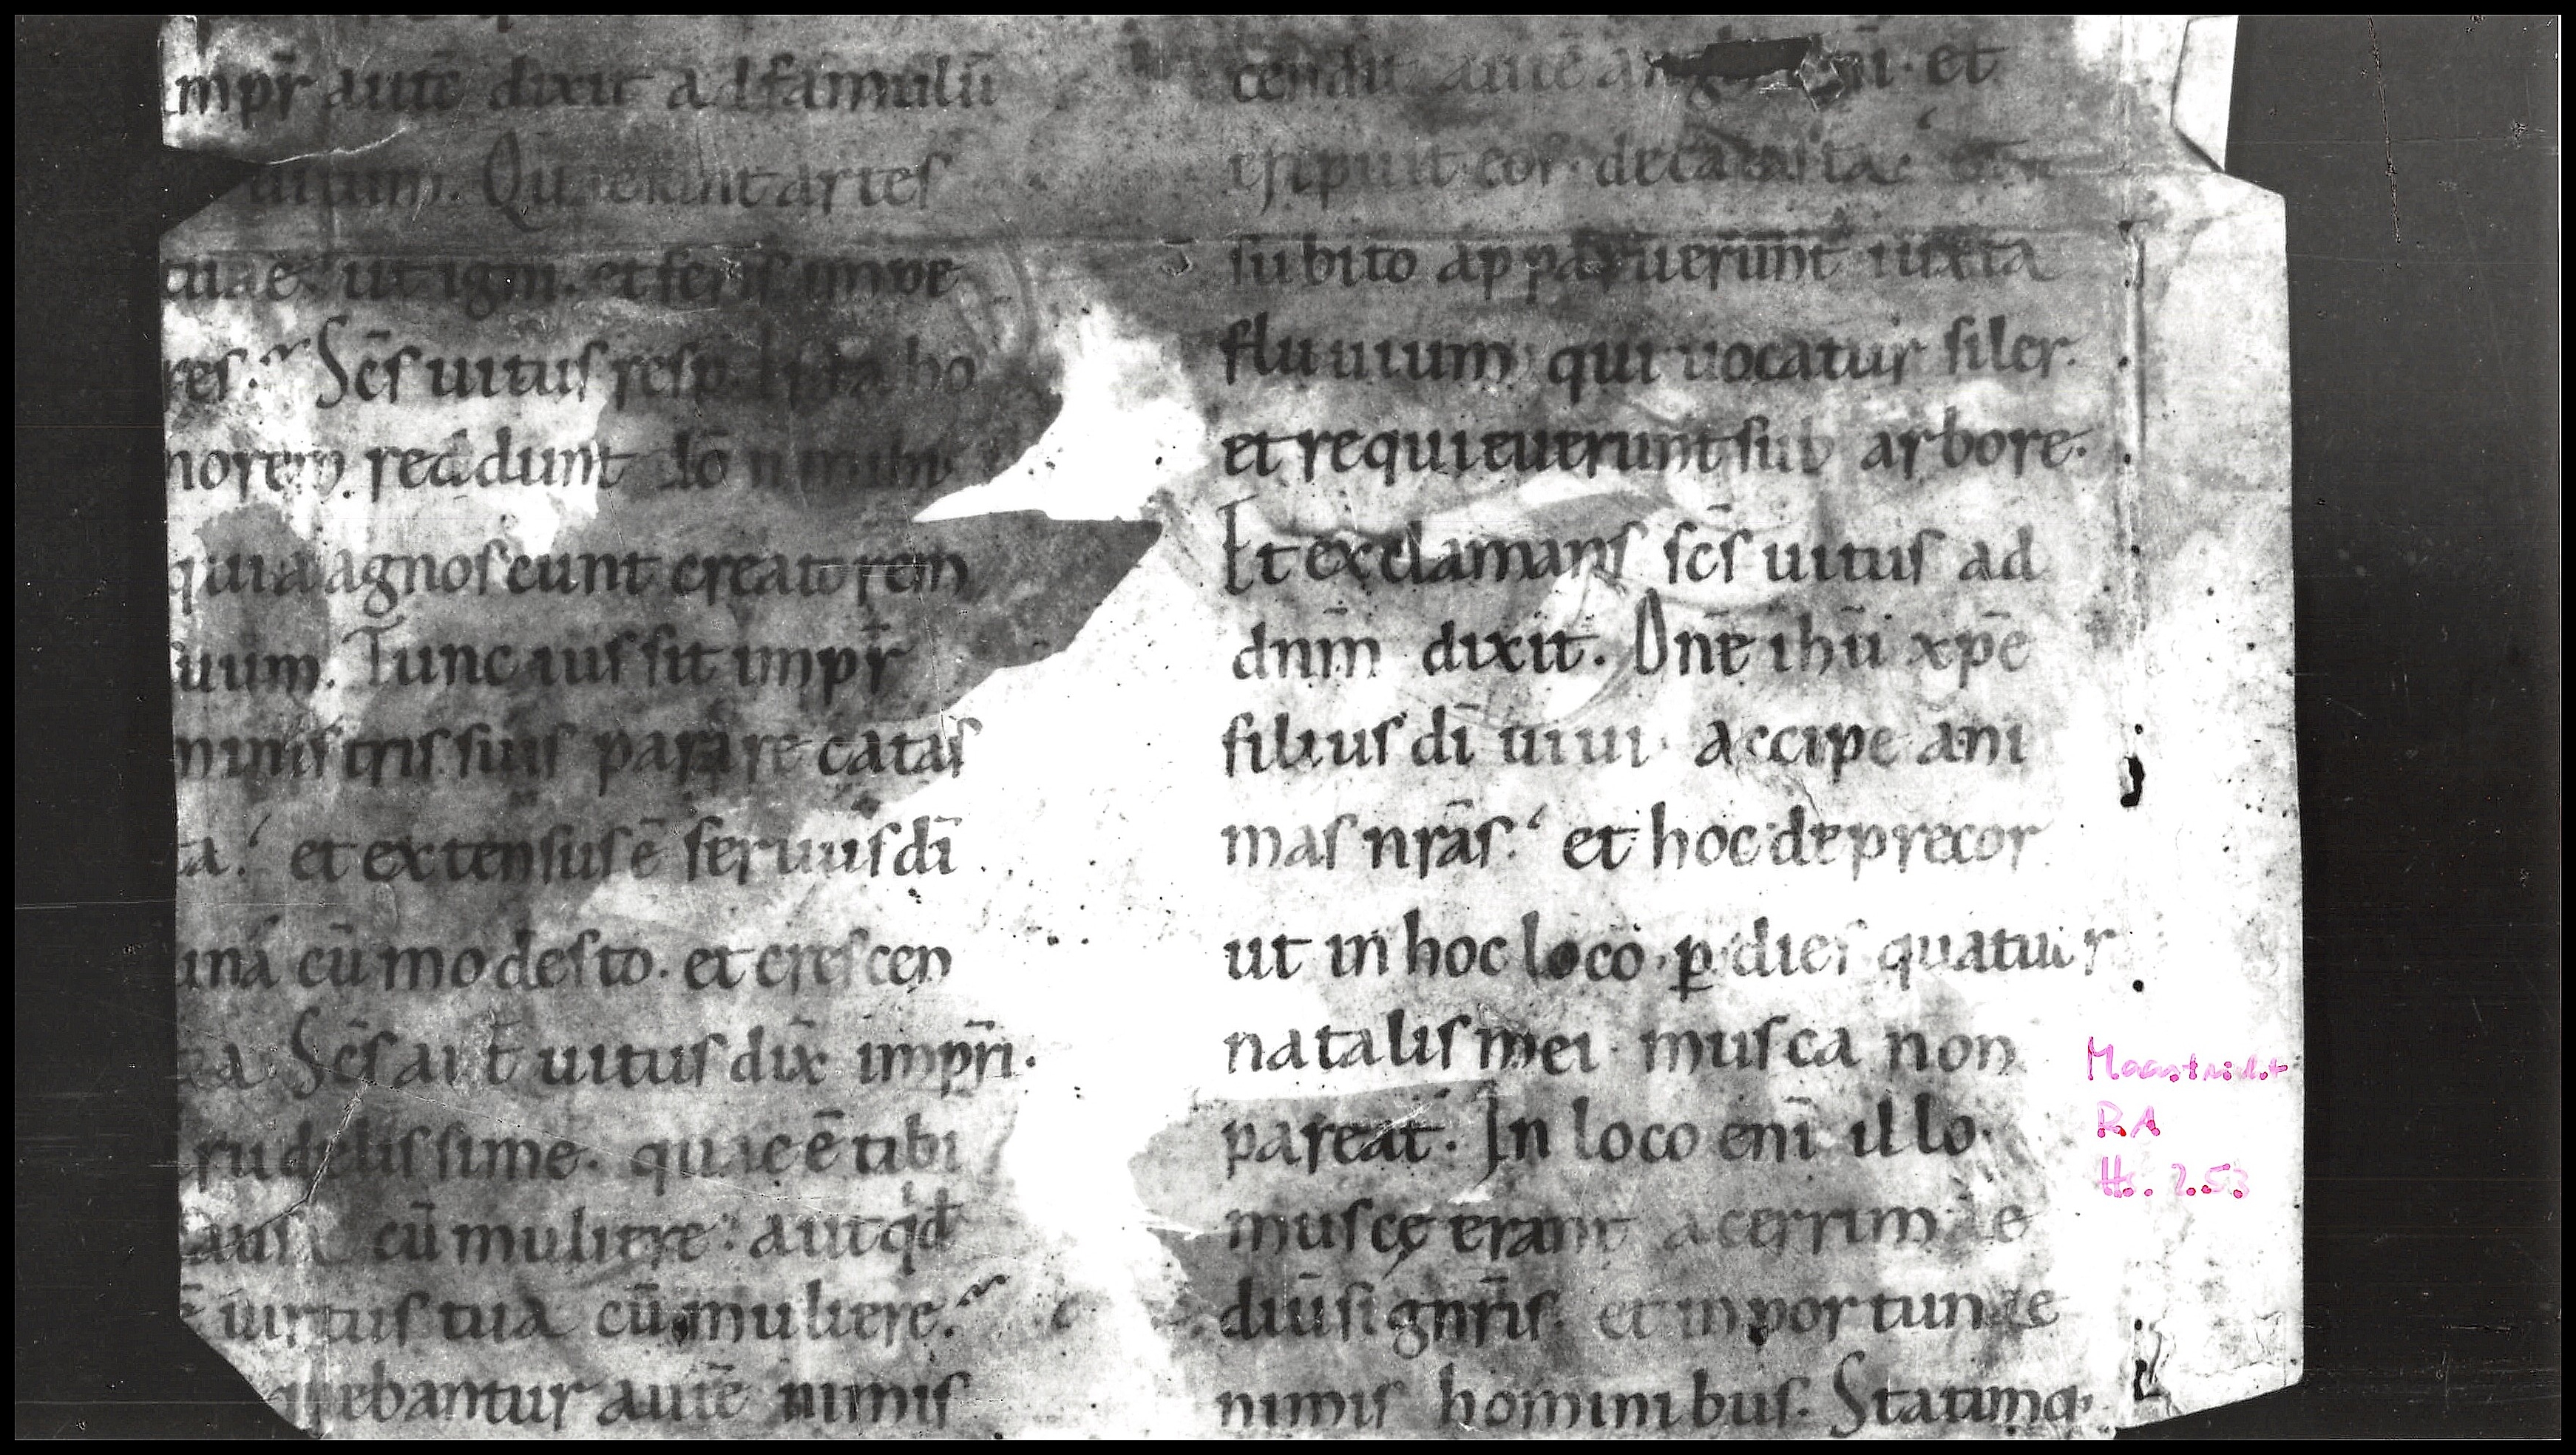 mpr̄ autē dixit ad famulū
uitum. Quaerunt artes
tuae ut igni. et feris impe
res. Sc̄s uitus resp. Ista ho
norem reddunt dō n mihi
quia agnoscunt creatorem
suum. Tunc iussit impr̄
ministris suis parare catas
ta. et extensus ē seruus dī
una cū modesto. et crescen
Sc̄s aut̄ uitus dix̄ impr̄i.
rudelissime. quae ē tibi
cū muliere. aut qd̄
ē uirtus tua cū muliere.
ebantur autē nimis
cendit autē et
eripuit eos de catasta.
subito apparuerunt iuxta
fluuium qui uocatur siler.
et requieuerunt sub arbore.
Et exclamans sc̄s uitus ad
dnm̄ dixit. Dnē ihū xpē
filius dī uiui accipe ani
mas nrās. et hoc deprecor
ut in hoc loco ꝑ dies quatuor
natalis mei musca non
pareat. In loco enī illo
muscę erant acerrimae
et inportunae
nimis hominibus. Statimq;
Maastricht
RA
Hs. 253